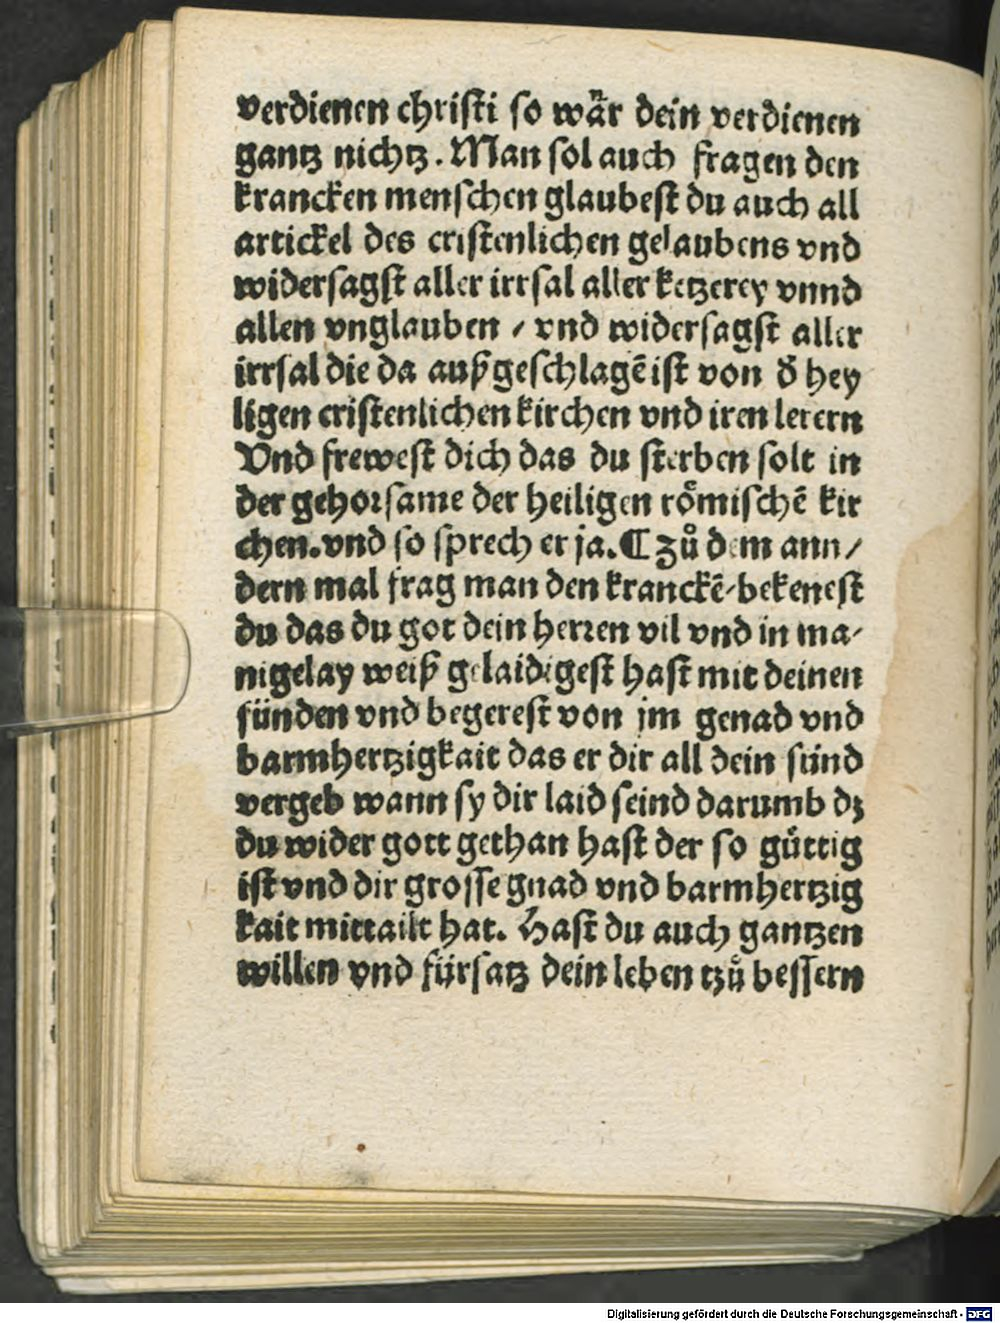 verdienen christi so wår dein verdienen
gantz nichtz. Man sol auch fragen den
krancken menschen glaubest du auch all
artickel des cristenlichen gelaubens vnd
widersagst aller irrsal aller ketzerey vnnd
allen vnglauben / vnd widersagst aller
irrsal die da außgeschlagē ist von ð hey
ligen cristenlichen kirchen vnd iren lerern
Vnd frewest dich das du sterben solt in
der gehorsame der heiligen roͤmischē kir
chen. vnd so sprech er ja. ¶ zuͦ dem ann/
dern mal frag man den kranckē/ bekenest
du das du got dein herren vil vnd in ma-
nigelay weiß gelaidigest hast mit deinen
sünden vnd begerest von jm genad vnd
barmhertzigkait das er dir all dein sünd
vergeb wann sy dir laid seind darumb dz
du wider gott gethan hast der so guͤttig
ist vnd dir grosse gnad vnd barmhertzig
kait mittailt hat. Hast du auch gantzen
willen vnd fürsatz dein leben tzuͦ bessern
Digitalisierung gefördert durch die Deutsche Forschungsgemeinschaft - DFG